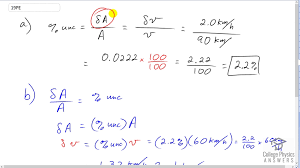 19PE
a) % unc = δA/A = δv/v = 2.0 km/h / 90 km/h
= 0.0222 × 100/100 = 2.22/100 = 2.2%
b) δA/A = % unc
δA = (% unc) A
δv = (% unc) v = (2.2%)(60 km/h) = 2.2/100 ×
College Physics